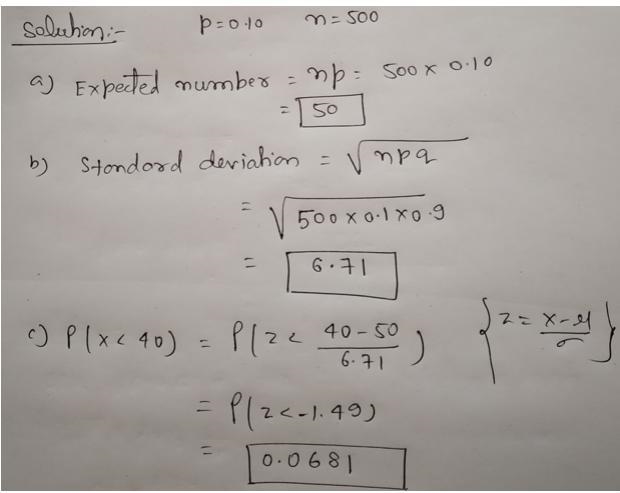 Solution:- p=0.10 n=500
a) Expected number = np = 500 x 0.10
= 50
b) Standard deviation = √npq
= √500x0.1x0.9
= 6.71
c) P(x<40) = P(z< 40-50/6.71) {z= x-μ/σ}
= P(z<-1.49)
= 0.0681